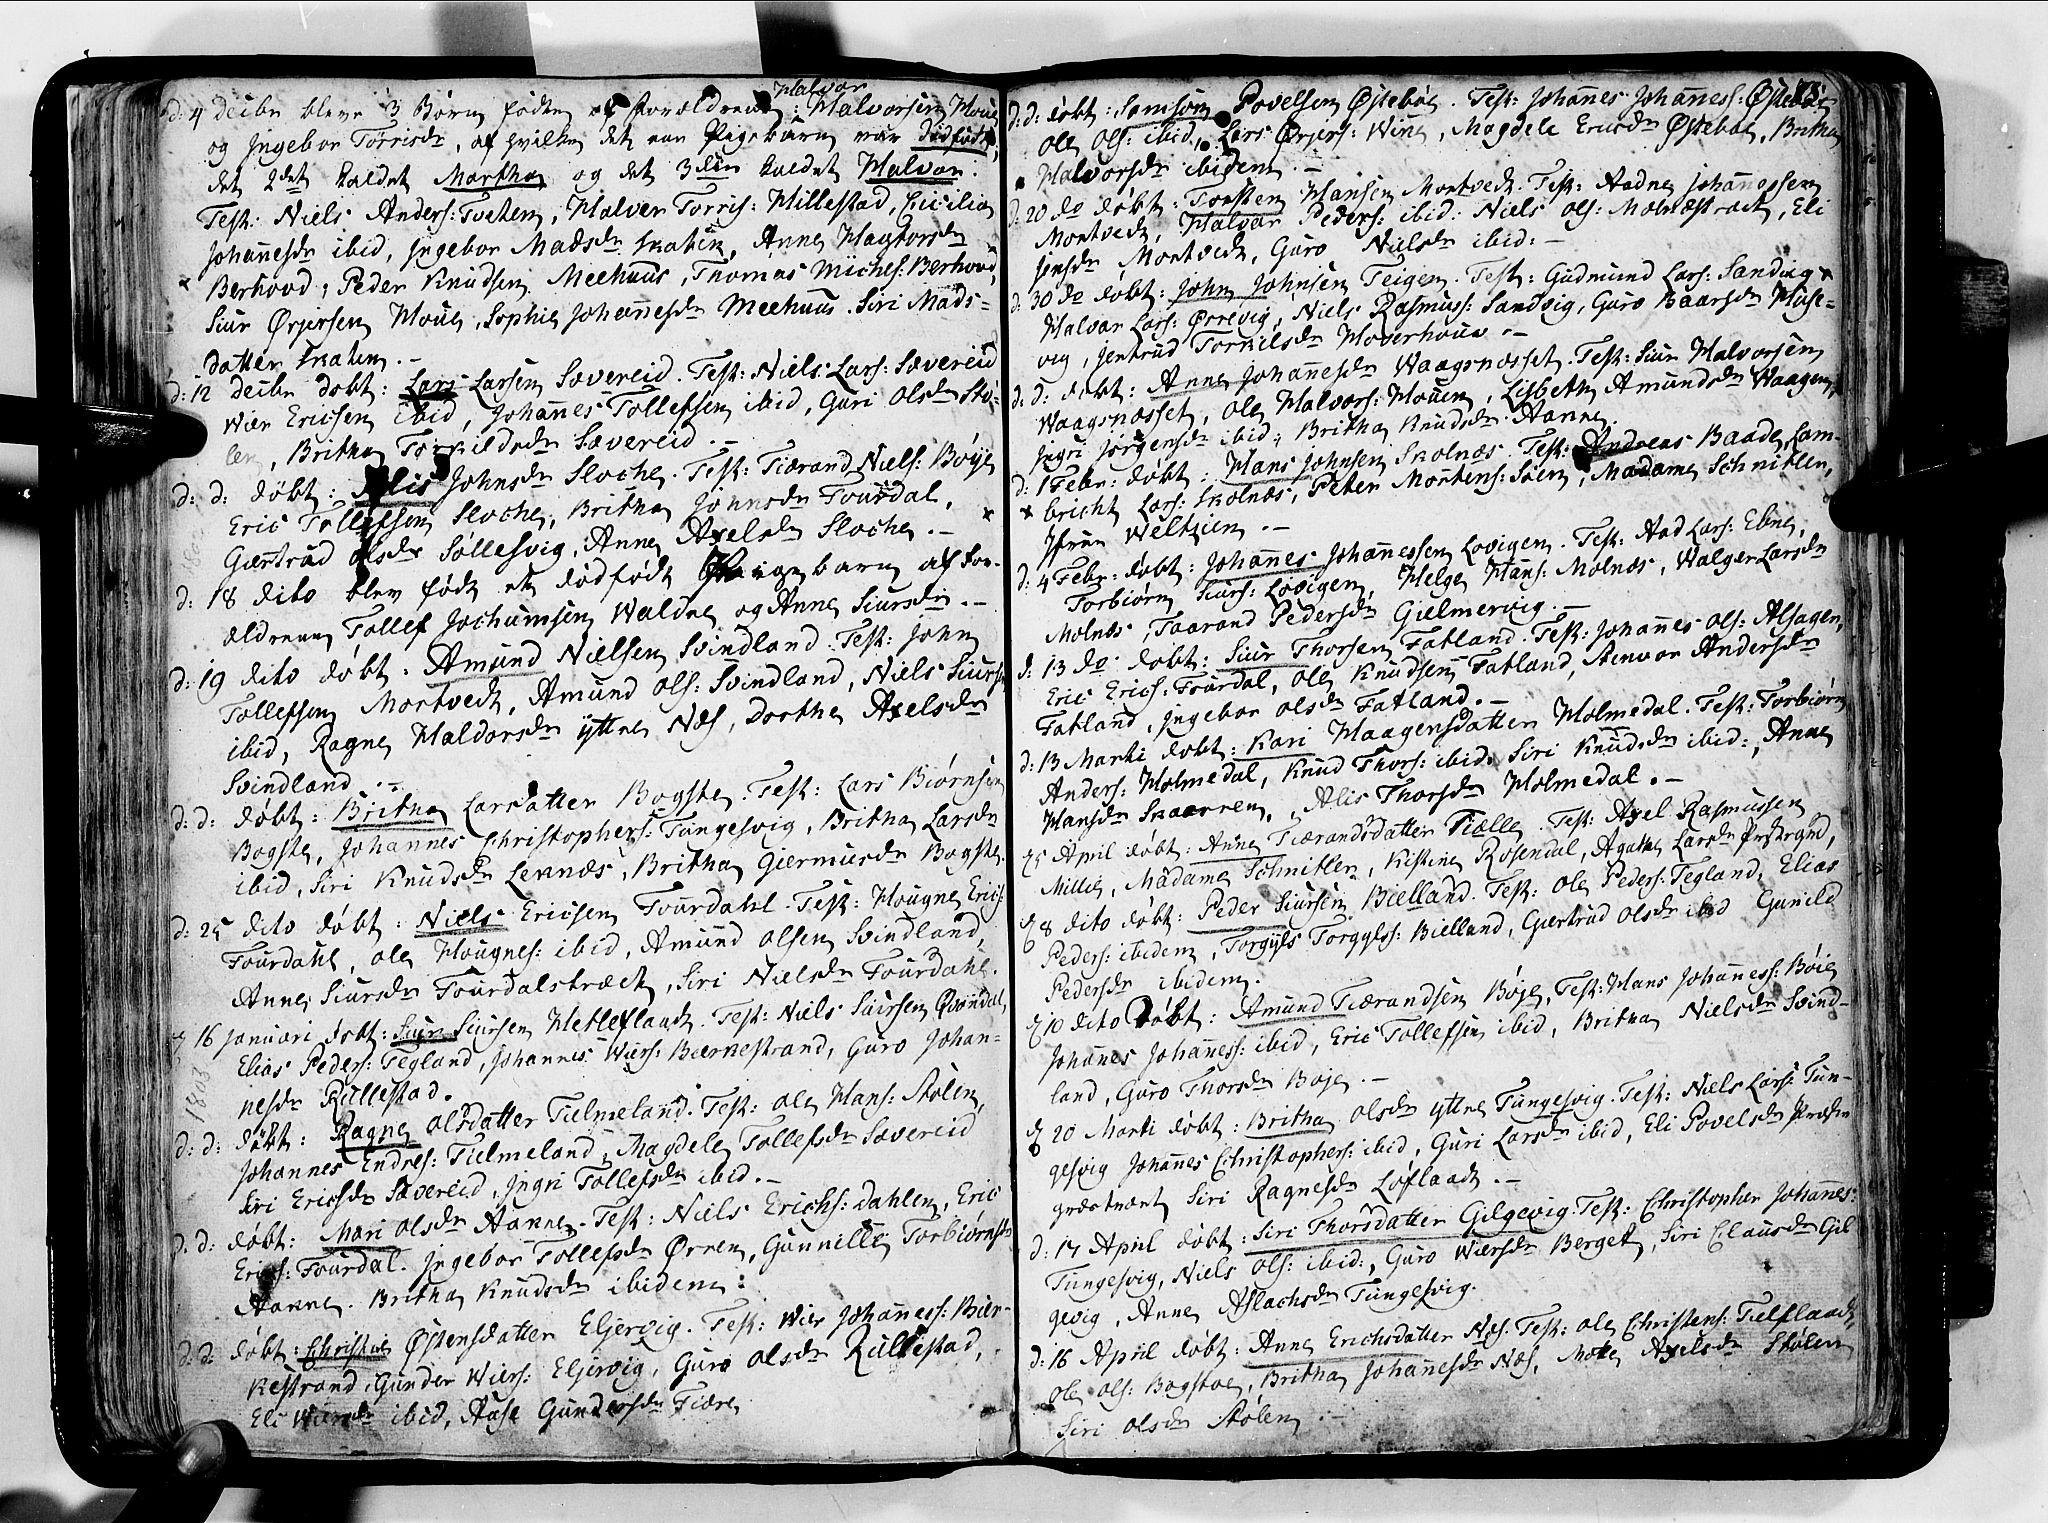 Halvor
d: 4 Decibr blev 3 Børn fødte af Forældrene : Halvorsen Houe
og Ingebor Torrisdr, af hvilke det eene Pigebarn var dødfødt,
det 2det kaldet Martha og det 3die kaldet Halvor.
Test: Niels Anders: Tveten, Halver Torris: Millestad, Cicilia
Johanesdr ibid, Ingebor Madsdr Skaten, Anne
Berhovd, Peder Knudsen Meehuus, Thomas Michels: Berhovd,
Siur Ørjersen Houe, Sophie Johannesdr Meehuus. Siri Mads-
datter Skaten.-
d: 12 Decibr døbt: Lars Larsen Sævereid. Test: Niels Lars: Sævereid
Wier Ericsen ibid, Johannes Tollefsen ibid, Guri Olsdr Stø-
len, Britha Torkildsdr Sævereid.-
d: d: døbt: Alis Johnsdr Sloche. Test: Tiærand Niels: Bøye
Eric Tollefsen Sloche, Britha Johnsdr Fourdal,
Giertrud Olsdr Søllesvig, Anne Axelsdr Sloche.-
d: 18 dito blev født et dødfødt barn af For-
ældrene Tollef Jochumsen Waldre og Anne Siursdr.-
d: 19 dito døbt: Amund Nielsen Svindland. Test: John
Tollefsen Mortvedt, Amund Ols: Svindland, Niels Siurs:
ibid, Ragne Haldorsdr yttre Næs, Dorthe Axelsdr
Svindland.-
d: d: døbt: Britha Larsdatter Bogste. Test: Lars Biørnsen
Bogste, Johannes Christophers: Tungesvig, Britha Larsdr
ibid, Siri Knudsdr Lennæs, Britha Giermundsdr Bogste.
d: 25 dito døbt: Niels Ericsen Fourdahl. Test: Hougne Erics:
Fourdahl, Ole Hougnes: ibid, Amund Olsen Svindland,
Anne Siursdr Fourdalstræet, Siri Nielsdr Fourdahl.
d 16 Januari døbt: Siur Siursen Hetleflaadt. Test: Niels Siursen Qvindal,
Elias Peders: Tegland, Johannes Wiers: Bierkestrand, Guro Johan-
nesdr Rullestad.
1803
d: d: døbt: Ragne Olsdatter Tielmeland. Test: Ole Hans: Stølen,
Johannes Endres: Tielmeland, Magdele Tollefsdr Sævereid
Siri Ericsdr Sævereid, Ingri Tollefsdr ibid.-
d: d: døbt: Mari Olsdr Aanne. Test: Niels Erichs: Dahlen, Eric
Erics: Fourdal. Ingebor Tollefsdr Ørren, Gunnille Torbiørnsdr
Aanne. Britha Knudsdr ibidem.
d: d: døbt: Christie Østensdatter Eljervig. Test: Wier Johanness: Bier-
kestrand, Gunder Wiers: Eljervig, Guro Olsdr Rullestad,
Eli Wiersdr ibid, Aase Gundersdr Fiære
d: d: døbt: Samson Povelsen Østebøe. Test: Johannes Johanness: Østebøe
Ole Ols: ibid, Lars Ørjers: Wine, Magdele Ericsdr Østebøe, Britha
Halvorsdr ibidem.-
d: 20 do døbt: Torsten Hansen Mortvedt. Test: Aadne Johannessen
Mortvedt, Halvor Peders: ibid: Niels Ols: Molnestræet, Eli
Jensdr Mortvedt, Guro Nielsdr ibid:-
d: 30 do døbt: John Johnsen Teigen. Test: Gudmund Lars: Sandvig
Halvor Lars: Ørrevig, Niels Rasmuss: Sandvig, Guro Baarsdr Huse-
vig, Jentrud Torkilsdr Moderhoue.-
d: d: døbt: Anne Johannesdr Waagsnæsset. Test: Siur Halvorsen
Waagsnæsset, Ole Halvors: Houen, Lisbeth Amundsdr Waagen,
Ingri Jørgensdr ibid, Britha Knudsdr Aanne
d: 1 Febr: døbt: Hans Johnsen Skolnæs. Test: Andreas Baade, Lam-
bricht Lars: Skolnæs, Peter Mortens: Søen, Madame Schnitler,
Jfrue Weltzien.-
d: 4 Febr: døbt: Johannes Johannessen Lovigen. Test: Aad Lars: Ebne,
Torbiørn Siurs: Lovigen, Helge Hans: Molnæs, Walger Larsdr
Molnæs, Taarand Pedersdr Gielmervig.-
d: 13 do døbt: Siur Thorsen Fatland. Test: Johannes Ols: Alsagen,
Eric Erics: Fourdal, Ole Knudsen Fatland, Stenvor Andersdr
Fatland, Ingebor Olsdr Fatland.-
d: 13 Marti døbt: Kari Haagensdatter Holmedal. Test: Torbiørn
Anders: Holmedal, Knud Thors: ibid. Siri Knudsdr ibid:, Anne
Hansdr Skaarren, Alis Thorsdr Holmedal.-
5 April døbt: Anne Tiærandsdatter Tiælle. Test: Axel Rasmussen
Millie, Madame Schnitler, Kistine Rosendal, Agathe Larsdr
8 dito døbt: Peder Siursen Bielland. Test: Ole Peders: Tegland, Elias
Peders: ibidem, Torgyls Torgylss: Bielland, Giertrud Olsdr ibid Gunild
Pedersdr ibidem.
10 dito døbt: Amund Tiærandsen Bøje, Test: Hans Johanness: Bøie
Johanes Johaness: ibid, Eric Tollefsen ibid, Britha Nielsdr Svind-
land, Guro Thorsdr Boje.-
20 Marti døbt: Britha Olsdr yttre Tungesvig. Test: Niels Lars: Tun-
gesvig Johanes Christophers: ibid, Guri Larsdr ibid, Eli Povelsdr Præste
græstræet Siri Ragnesdr Løflaadt.-
d: 17 April døbt: Siri Thorsdatter Gilgevig. Test: Christopher Johannes:
Tungesvig, Niels Ols: ibid:, Guro Wiersdr Berget, Siri Clausdr Gil
gevig, Anne Aslachsdr Tungesvig.
d: 16 April døbt: Anne Erichsdatter Næs. Test: Ole Christens: Tielflaadt,
Ole Ols: Bogstøe, Britha Johannesdr Næs, Axelsdr Stølen
Siri Olsdr Stølen.-